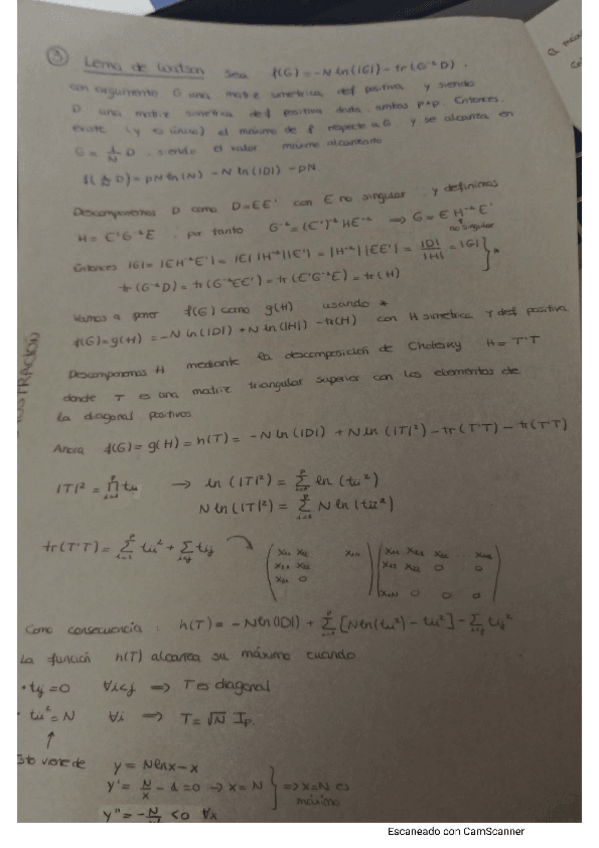 ③ Lema de Watson Sea f(G) = -N ln(|G|) - tr(G⁻¹D).
con argumento G una matriz simetrica def positiva y siendo
D una matriz simetrica def positiva dada, ambas p×p. Entonces
existe (y es único) el máximo de f respecto a G y se alcanza en
G = 1/N D, siendo el valor máximo alcanzado
f(1/N D) = pN ln(N) - N ln(|D|) - pN
Descomponemos D como D=EE' con E no singular y definimos
H = E'G⁻¹E, por tanto G⁻¹ = (E')⁻¹HE⁻¹ ⇒ G = E H⁻¹E'
no singular
Entonces |G| = |EH⁻¹E'| = |E||H⁻¹||E'| = |H⁻¹||EE'| = |D|/|H| = |G| } *
tr(G⁻¹D) = tr(G⁻¹EE') = tr(E'G⁻¹E) = tr(H)
Vamos a poner f(G) como g(H) usando *
f(G) = g(H) = -N ln(|D|) + N ln(|H|) - tr(H) con H simetrica y def positiva
DEMOSTRACIÓN
Descomponemos H mediante la descomposición de Cholesky H = T'T
donde T es una matriz triangular superior con los elementos de
la diagonal positivos
Ahora f(G) = g(H) = h(T) = -N ln(|D|) + N ln(|T|²) - tr(T'T) - tr(T'T)
|T|² = ∏ᵢ₌₁ᵖ tᵢᵢ → ln(|T|²) = Σᵢ₌₁ᵖ ln(tᵢᵢ²)
N ln(|T|²) = Σᵢ₌₁ᵖ N ln(tᵢᵢ²)
tr(T'T) = Σᵢ₌₁ᵖ tᵢᵢ² + Σᵢ<ⱼ tᵢⱼ
Como consecuencia: h(T) = -N ln(|D|) + Σᵢ₌₁ᵖ [N ln(tᵢᵢ²) - tᵢᵢ²] - Σᵢ<ⱼ tᵢⱼ²
La función h(T) alcanza su máximo cuando
· tᵢⱼ = 0 ∀i<j ⇒ T es diagonal
· tᵢᵢ² = N ∀i ⇒ T = √N Iₚ.
↑
Esto viene de y = N ln x - x
y' = N/x - 1 = 0 → x = N } ⇒ x=N es
máximo
y'' = -N/x² < 0 ∀x
Escaneado con CamScanner